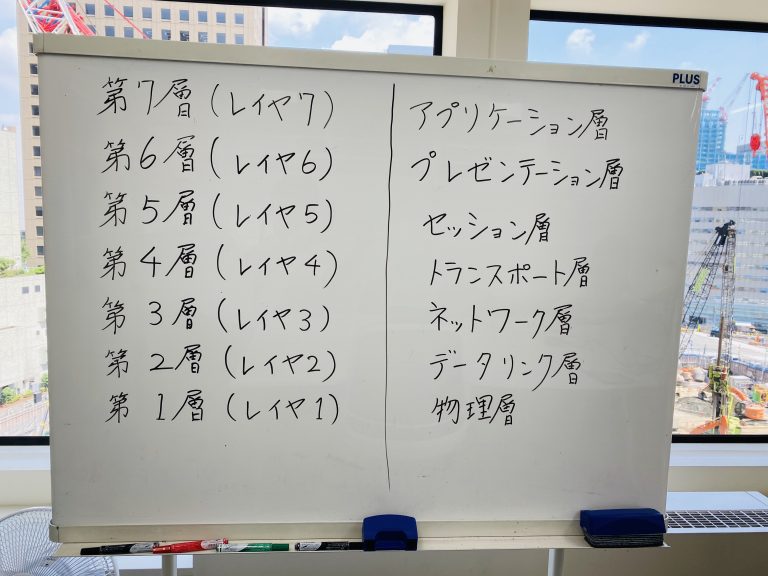 PLUS
第7層(レイヤ7) アプリケーション層
第6層(レイヤ6) プレゼンテーション層
第5層(レイヤ5) セッション層
第4層(レイヤ4) トランスポート層
第3層(レイヤ3) ネットワーク層
第2層(レイヤ2) データリンク層
第1層(レイヤ1) 物理層